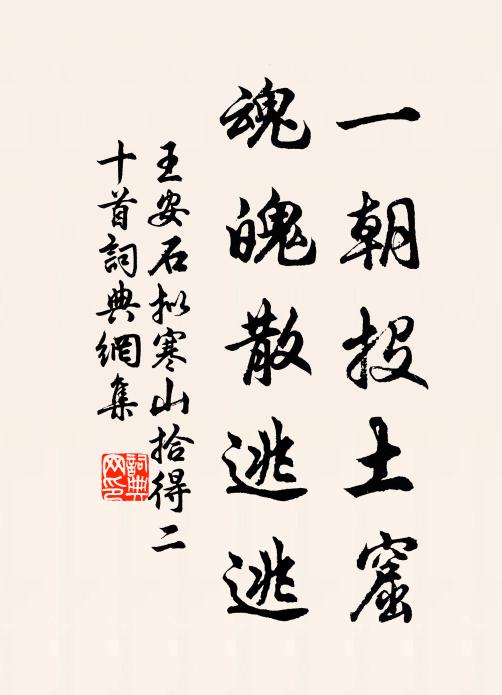 一朝投土窟
魂魄散逃逃
王安石拟寒山拾得二
十首詞典網集
詞典
网印